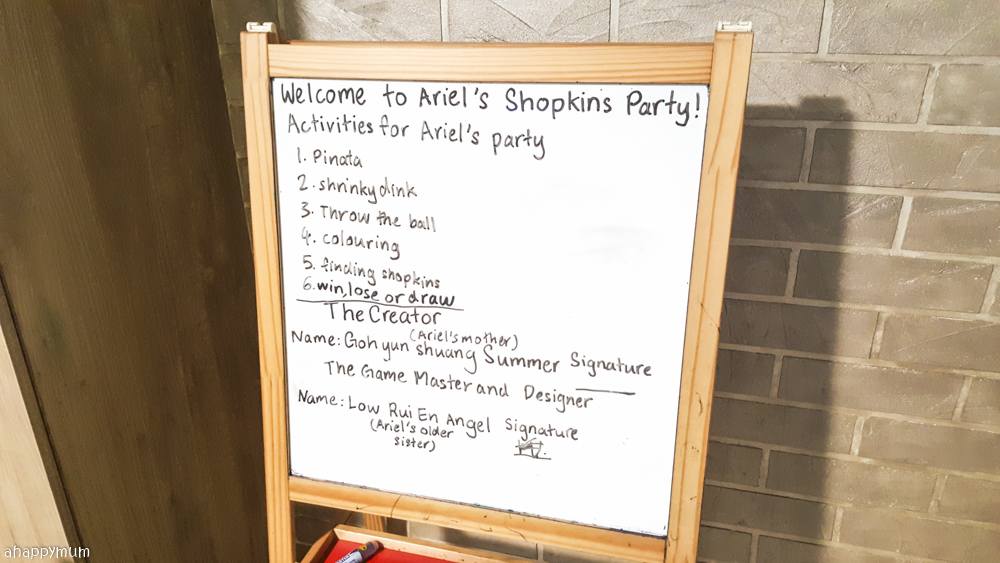 Welcome to Ariel's Shopkins Party!
Activities for Ariel's party
1. Pinata
2. shrinkydink
3. Throw the ball
4. colouring
5. finding shopkins
6. win, lose or draw
The Creator
(Ariel's mother)
Name: Goh yun shuang Summer Signature
The Game Master and Designer
Name: Low Rui En Angel Signature
(Ariel's older
sister)
ahappymum